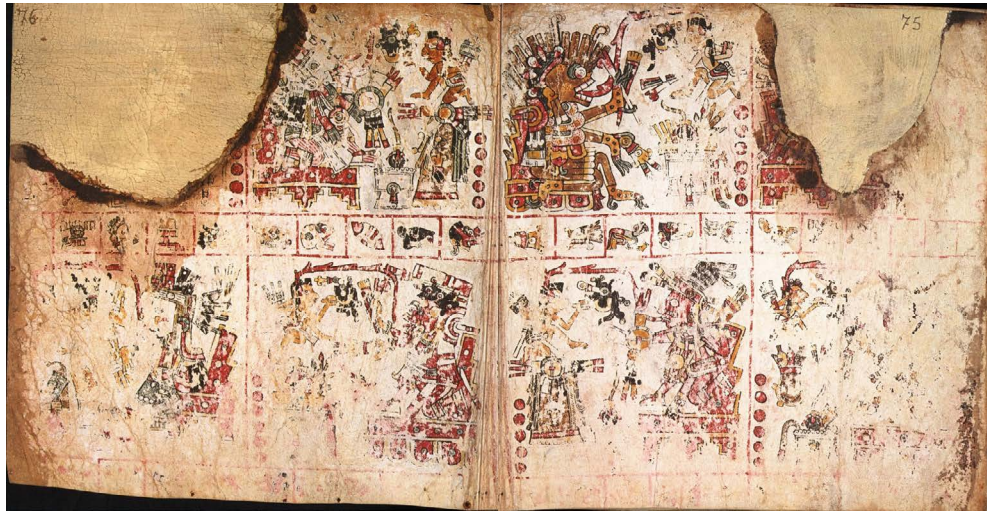 76
75